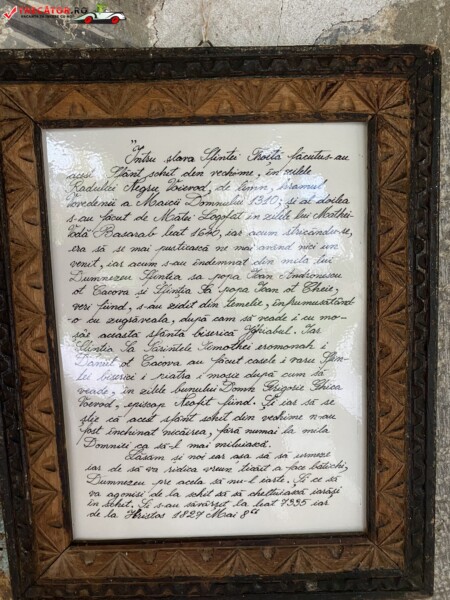 TRECĂTOR.RO
"Întru slava Sfintei Troiță făcutus-au
acest sfânt schit den vechime, în zilele
Radului Negru Voievod, de lemn, hramul
Vovedenii a Maicii Domnului 1310; și al doilea
s-au făcut de Matei Logofăt în zilele lui Mathei
Vodă Basarab leat 1620, iar acum stricându-se,
era să se mai pustiască ne mai având nici un
venit, iar acum s-au îndemnat din mila lui
Dumnezeu Sfinția sa popa Ioan Andronescu
ot Cacova și Sfinția Sa popa Ioan ot Cheie,
veri fiind, s-au zidit din temelie, înfrumusățând
o cu zugrăveala, după cum să veade i cu mo-
săe această sfântă biserică Iar
Sfinția Sa Părintele Timothei eromonah i
Daniil ot Cacova au făcut casele i varu Sfin-
tei biserici i piatra i mosie după cum să
veade, în zilele bunului Domn Grigorie Ghica
Voevod, episcop Neofit fiind. Și iar să se
știe că acest sfânt schit den vechime n-au
fost închinat nicăirea, fără numai la mila
Domniei ca să-l mai miluiască.
Lăsăm și noi iar așa să să urmeze
iar de să va ridica vreun a face
Dumnezeu pre acela să nu-l iarte. Și ce să
va agonisi de la schit să să cheltuiască iarăși
în schit. Și s-au săvârșit la leat 7335 iar
de la Hristos 1827 Mai 8"